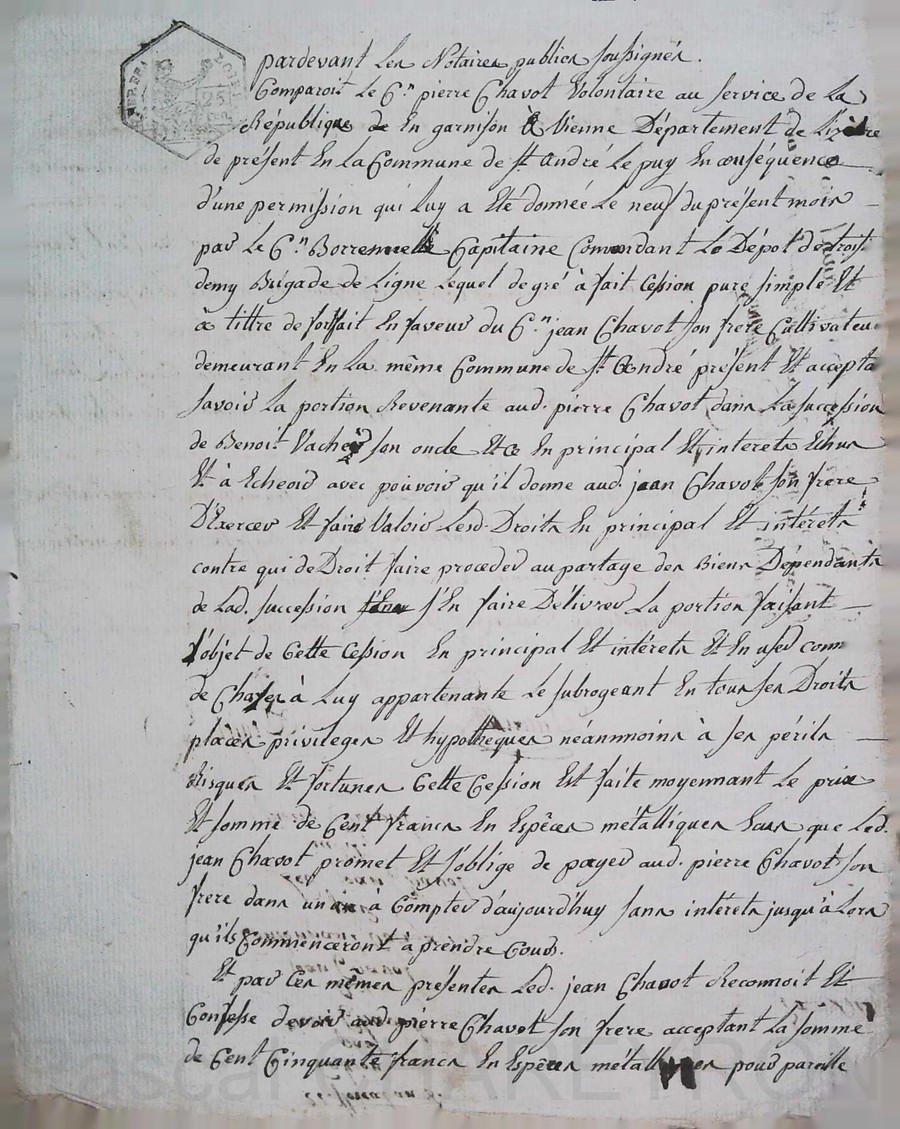 pardevant Les Notaires publics soussignés.
Comparoit Le C.en pierre Chavot Volontaire au service de La
République de En garnison à Vienne Département de Lizere
de présent En La Commune de st. andré Le puy En conséquence
d'une permission qui Luy a Eté donnée Le neuf du présent mois
par Le C.en Capitaine Comandant Le Dépot de trois
demy Brigade de Ligne Lequel de gré à fait Cession pure simple Et
a tittre de forfait En faveur du C.en jean Chavot son frere Cultivateur
demeurant En La même Commune de st. André présent Et accepta
savoir La portion Revenante aud. pierre Chavot dans La succession
de Benoit Vacher son oncle Et ce En principal Et interets Echus
Et à Echeoir avec pouvoir qu'il donne aud. jean Chavot son frere
D'Exercer Et faire Valoir Lesd. Droits En principal Et intérets
contre qui de Droit faire proceder au partage des Biens Dépendants
de Lad. succession s'En faire Délivrer La portion faisant
L'objet de Cette Cession En principal Et intérets Et En user com
de Chose à Luy appartenante Le subrogeant En tous ses Droits
places privileges Et hypotheques néanmoins à ses périls
Risques Et fortunes Cette Cession Est faite moyennant Le prix
Et somme de Cent francs En Espêces métalliques que Led.
jean Chavot promet Et s'oblige de payer aud. pierre Chavot son
frere dans un an à Compter d'aujourdhuy sans intérets jusqu'à Lors
qu'ils Commenceront a prendre Cours.
Et par Ces mêmes présentes Led. jean Chavot Reconnoit Et
Confesse devoir aud pierre Chavot son frere acceptant La somme
de Cent Cinquante francs En Espêces métalliques pour pareille